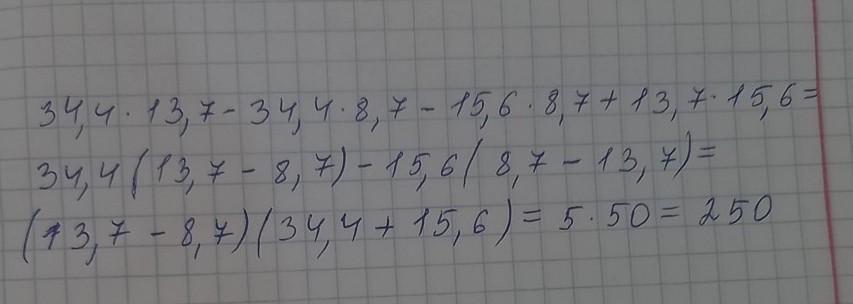 34,4 · 13,7 - 34,4 · 8,7 - 15,6 · 8,7 + 13,7 · 15,6 =
34,4 (13,7 - 8,7) - 15,6 (8,7 - 13,7) =
(13,7 - 8,7) (34,4 + 15,6) = 5 · 50 = 250